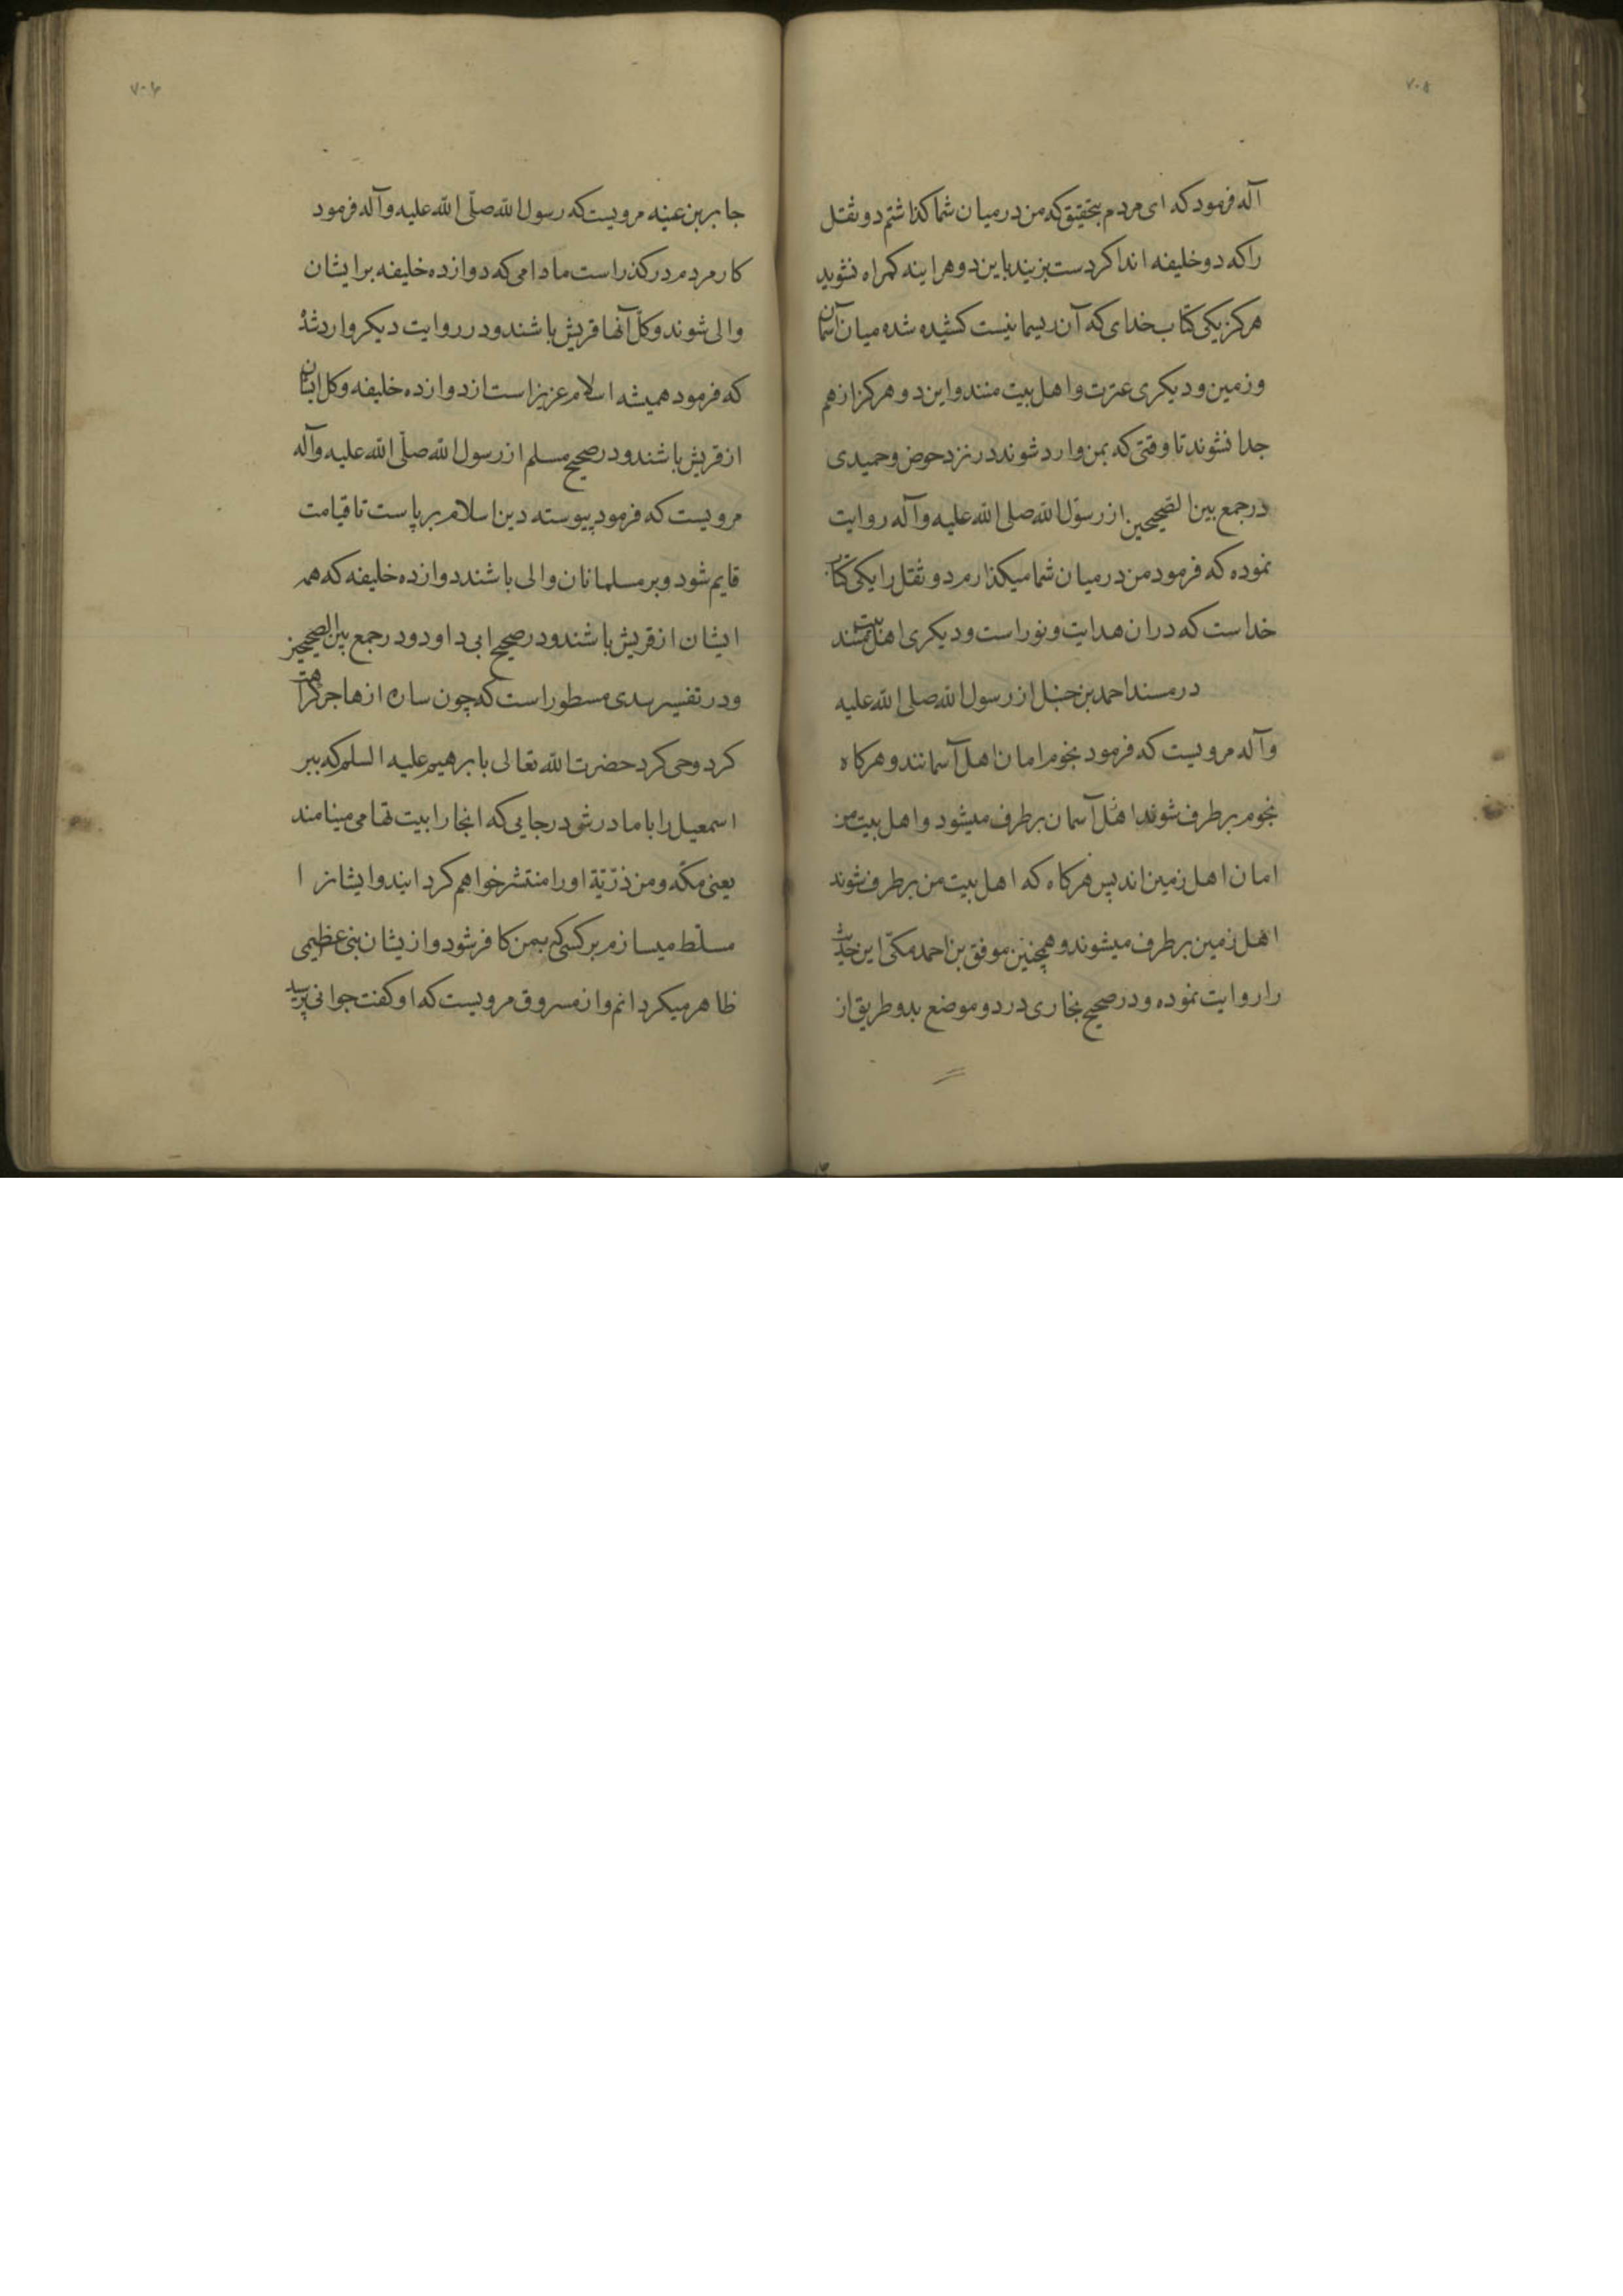 ۷۰۵
آله فرمود که ای مردم بتحقیق که من در میان شما کذاشتم دو ثقل
را که دو خلیفه اند اکر دست بزنید باین دو هراینه کمراه نشوید
هرکز یکی کتاب خدای که آن ریسمانیست کشیده شده میان آسمان
و زمین و دیکری عترت و اهل بیت منند و این دو هرکز از هم
جدا نشوند تا وقتی که بمن وارد شوند در نزد حوض و حمیدی
در جمع بین الصحیحین از رسول الله صلی الله علیه وآله روایت
نموده که فرمود من در میان شما میکذارم دو ثقل را یکی کتاب
خداست که دران هدایت و نور است و دیکری اهل بیت منند
در مسند احمد بن حنبل از رسول الله صلی الله علیه
وآله مرویست که فرمود نجوم امان اهل آسمانند و هرکاه
نجوم برطرف شوند اهل آسمان برطرف میشود و اهل بیت من
امان اهل زمین اند پس هرکاه که اهل بیت من برطرف شوند
اهل زمین برطرف میشوند و همچنین موفق بن احمد مکّی این حدیث
را روایت نموده و در صحیح بخاری در دو موضع بدو طریق از
۷۰۶
جابر بن عینه مرویست که رسول الله صلّی الله علیه وآله فرمود
کار مردم در کذر است مادامی که دوازده خلیفه بر ایشان
والی شوند و کلّ آنها قریش باشند و در روایت دیکر وارد شده
که فرمود همیشه اسلام عزیز است از دوازده خلیفه و کل ایشان
از قریش باشند و در صحیح مسلم از رسول الله صلّی الله علیه وآله
مرویست که فرمود پیوسته دین اسلام بر پاست تا قیامت
قایم شود و بر مسلمانان والی باشند دوازده خلیفه که همه
ایشان از قریش باشند و در صحیح ابی داود و در جمع بین الصحیحین
و در تفسیر سدی مسطور است که چون ساره از هاجر کراهت
کرد وحی کرد حضرت الله تعالی بابرهیم علیه السلم که ببر
اسمعیل را با مادرش در جایی که انجا را بیت تهامی مینامند
یعنی مکّه و من ذرّیّة او را منتشر خواهم کردانید و ایشانرا
مسلّط میسازم بر کسی که بمن کافر شود و ازیشان نبی عظیمی
ظاهر میکردانم و از مسروق مرویست که او کفت جوانی پرسید